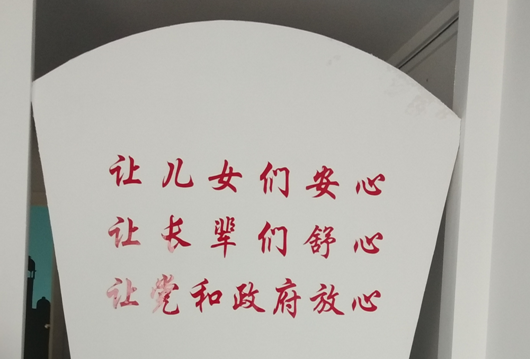 让儿女们安心
让长辈们舒心
让党和政府放心